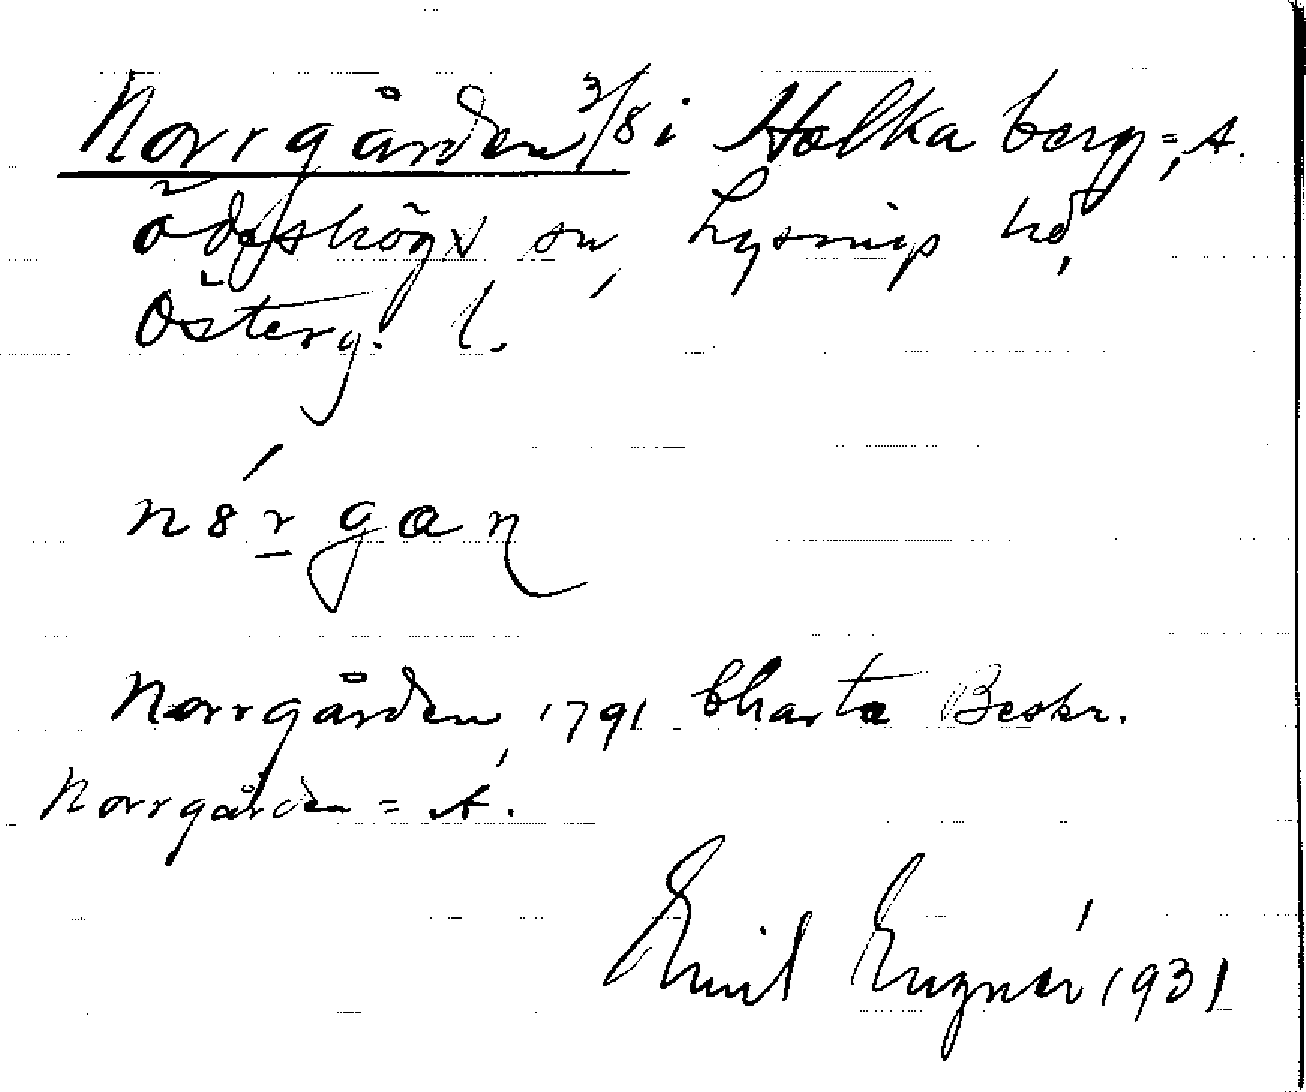 Norrgården 3/8 i Holkaberg =, A.
Ödeshögs sn, Lysings hd,
Österg. l.
n8́rgan
Norrgården, 1791 Charta Beskr.
Norrgården = A.
Emil 1931